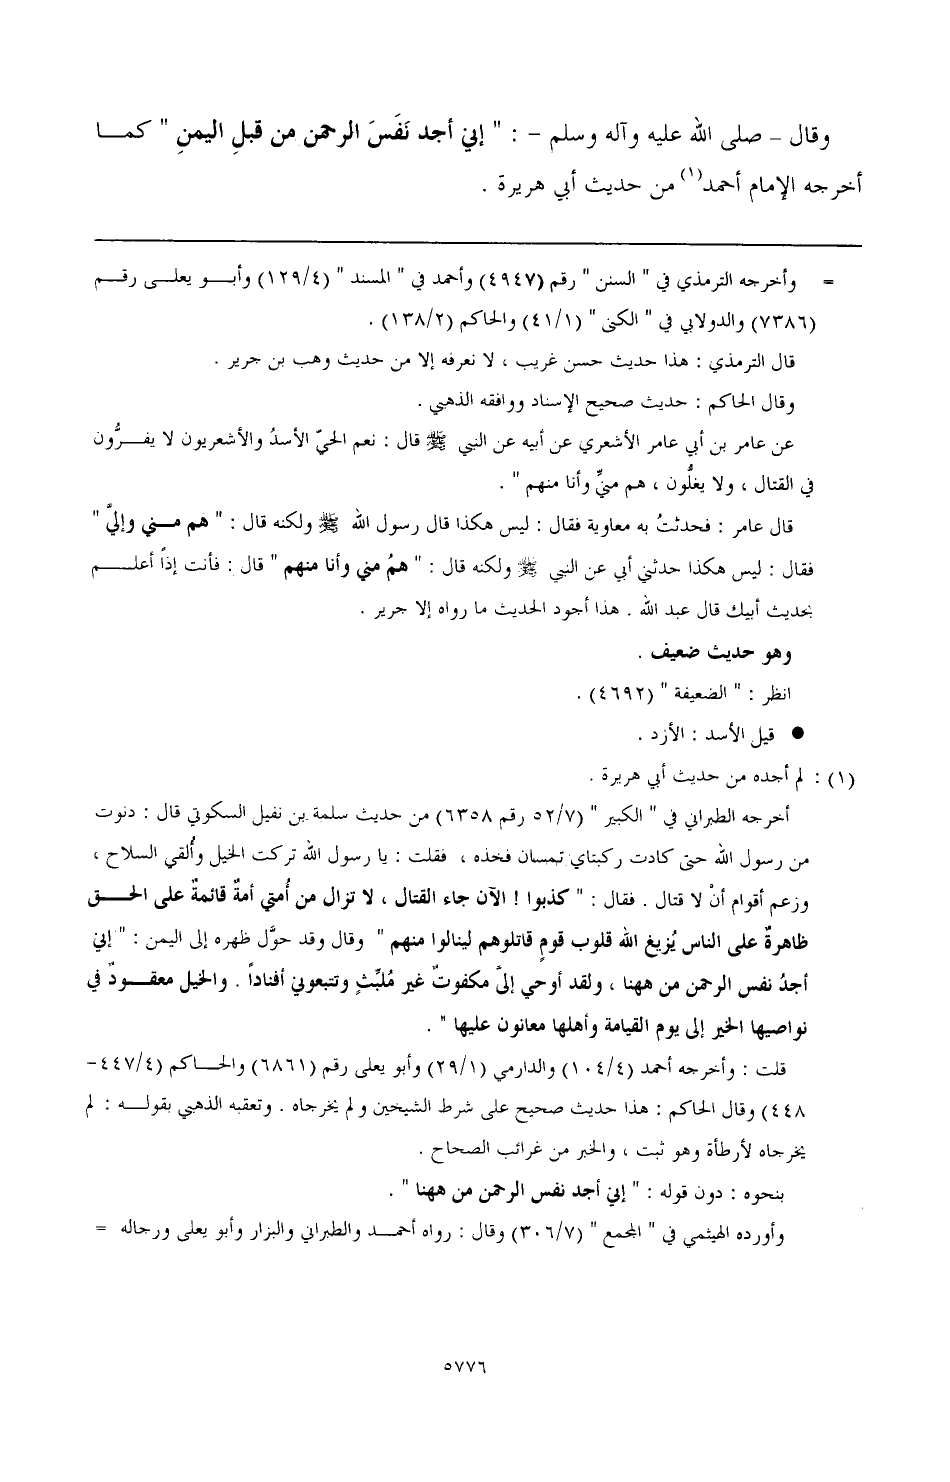 وقال – صلى الله عليه وآله وسلم – : " إني أجد نَفَسَ الرحمن من قبلِ اليمنِ " كمـــا
أخرجه الإمام أحمد(١) من حديث أبي هريرة .
= وأخرجه الترمذي في " السنن " رقم (٤٩٤٧) وأحمد في " المسند " (١٢٩/٤) وأبـــو يعلـــى رقـــم
(٧٣٨٦) والدولابي في " الكنى " (٤١/١) والحاكم (١٣٨/٢) .
قال الترمذي : هذا حديث حسن غريب ، لا نعرفه إلا من حديث وهب بن جرير .
وقال الحاكم : حديث صحيح الإسناد ووافقه الذهبي .
عن عامر بن أبي عامر الأشعري عن أبيه عن النبي ﷺ قال : نعم الحيّ الأسدُ والأشعريون لا يفـــرُّون
في القتال ، ولا يغلُّون ، هم منيِّ وأنا منهم " .
قال عامر : فحدثتُ به معاوية فقال : ليس هكذا قال رسول الله ﷺ ولكنه قال : " هم مـــني وإليَّ "
فقال : ليس هكذا حدثني أبي عن النبي ﷺ ولكنه قال : " همُ مني وأنا منهم " قال : فأنت إذاً أعلـــم
بحديث أبيك قال عبد الله . هذا أجود الحديث ما رواه إلا جرير .
وهو حديث ضعيف .
انظر : " الضعيفة " (٤٦٩٢) .
● قيل الأسد : الأزد .
(١) : لم أجده من حديث أبي هريرة .
أخرجه الطبراني في " الكبير " (٥٢/٧ رقم ٦٣٥٨) من حديث سلمة بن نفيل السكوتي قال : دنوت
من رسول الله حتى كادت ركبتاي تمسان فخذه ، فقلت : يا رسول الله تركت الخيل وأُلقي السلاح ،
وزعم أقوام أنْ لا قتال . فقال : " كذبوا ! الآن جاء القتال ، لا تزال من أُمتي أمةٌ قائمةٌ على الحـــق
ظاهرةٌ على الناس يُزيغ الله قلوب قومٍ قاتلوهم لينالوا منهم " وقال وقد حوَّل ظهره إلى اليمن : " إني
أجدُ نفس الرحمن من ههنا ، ولقد أوحي إليَّ مكفوتٌ غير مُلبِّثٍ وتتبعوني أفناداً . والخيل معقـــودٌ في
نواصيها الخير إلى يوم القيامة وأهلها معانون عليها " .
قلت : وأخرجه أحمد (١٠٤/٤) والدارمي (٢٩/١) وأبو يعلى رقم (٦٨٦١) والحـــاكم (٤٤٧/٤–
٤٤٨) وقال الحاكم : هذا حديث صحيح على شرط الشيخين ولم يخرجاه . وتعقبه الذهبي بقولـــه : لم
يخرجاه لأرطأة وهو ثبت ، والخبر من غرائب الصحاح .
بنحوه : دون قوله : " إني أجد نفس الرحمن من ههنا " .
وأورده الهيثمي في " المجمع " (٣٠٦/٧) وقال : رواه أحمـــد والطبراني والبزار وأبو يعلى ورجاله =
٥٧٧٦